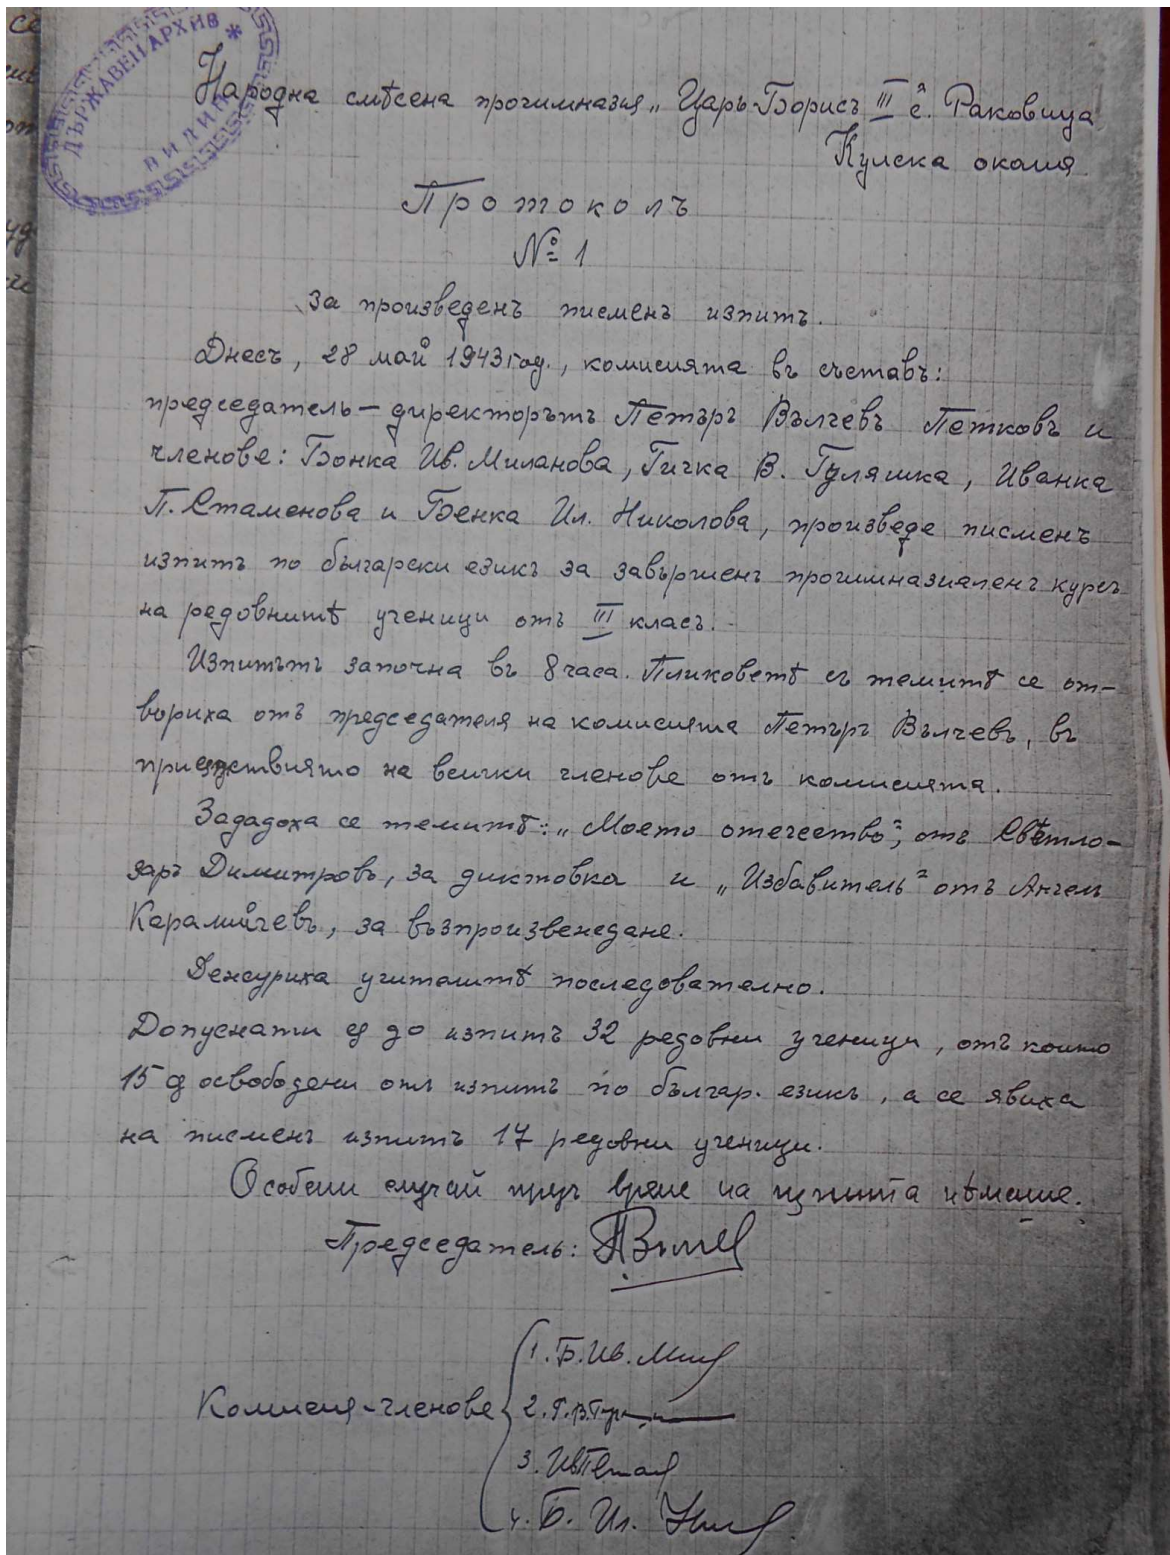 ДЪРЖАВЕН АРХИВ *
ВИДИН
Народна смѣсена прогимназия „Царь Борисъ III“ с. Раковица
Кулска околия
Протоколъ
№ 1
за произведенъ писменъ изпитъ.
Днесъ, 28 май 1943 год., комисията въ съставъ:
председатель – директорътъ Петъръ Вълчевъ Петковъ и
членове: Бонка Ив. Миланова, Гичка В. Гуляшка, Иванка
П. Стаменова и Бенка Ил. Николова, произведе писменъ
изпитъ по български езикъ за завършенъ прогимназиаленъ курсъ
на редовнитѣ ученици отъ III класъ.
Изпитътъ започна въ 8 часа. Пликоветѣ съ темитѣ се от-
вориха отъ председателя на комисията Петъръ Вълчевъ, въ
присѫтствието на всички членове отъ комисията.
Зададоха се темитѣ: „Моето отечество“, отъ Свѣтло-
заръ Димитровъ, за диктовка и „Избавитель“ отъ Ангелъ
Каралийчевъ, за възпроизвеждане.
Дежуриха учителитѣ последователно.
Допуснати сѫ до изпитъ 32 редовни ученици, отъ които
15 сѫ освободени отъ изпитъ по българ. езикъ, а се явиха
на писменъ изпитъ 17 редовни ученици.
Особени случаи презъ време на изпита нѣмаше.
Председатель: ПВълчев
Комисия-членове
1. Б. Ив. Мил
2. Г. В. Гул
3. Ив П Стам
4. Б. Ил. Ник